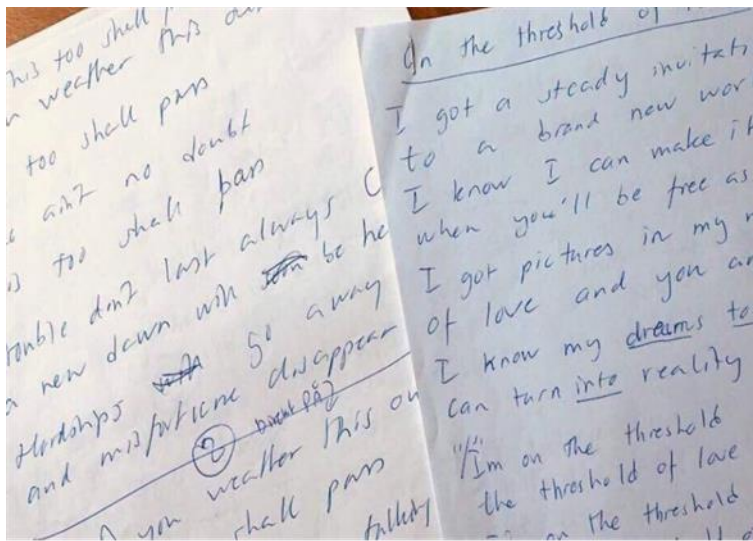 this too shall
weather this ou
too shall pass
ain't no doubt
too shall pass
trouble don't last always
a new dawn will be he
Hardships go away
and misfortune disappear
2
you weather this ou
shall pass
talking
On the threshold of
I got a steady invitati
to a brand new wor
I know I can make it
when you'll be free as
I got pictures in my
of love and you an
I know my dreams to
can turn into reality
"I'm on the threshold
the threshold of love
on the threshold